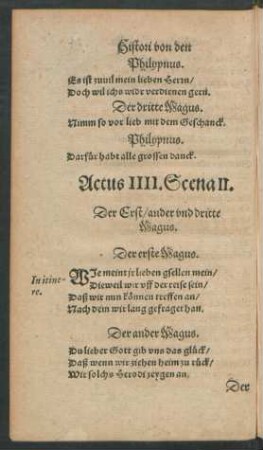 Histori von den
Philyppus.
Es ist zuuil mein lieben Herrn/
Doch wil ichs widr verdienen gern.
Der dritte Magus.
Nimm so vor lieb mit dem Geschanck.
Philyppus.
Darfür habt alle grossen danck.
Actus IIII. Scena II.
Der Erst/ander vnd dritte
Magus.
Der erste Magus.
In itine-
re.
WIe meint jr lieben gsellen mein/
Dieweil wir vff der reise sein/
Daß wir nun können treffen an/
Nach dem wir lang gefraget han.
Der ander Magus.
Du lieber Gott gib vns das glück/
Daß wenn wir ziehen heim zu rück/
Wir solchs Herodi zeygen an.
Der